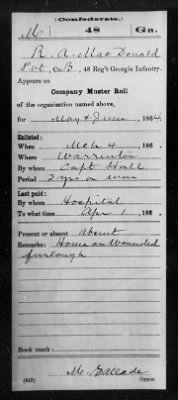 (Confederate.)
M 48 Ga.
R. A. MacDonald
Pvt, Co. B, 48 Reg't Georgia Infantry.
Appears on
Company Muster Roll
of the organization named above,
for May & June, 1864.
Enlisted:
When Mch 4, 186 .
Where Warrenton
By whom Capt Hall
Period 3 yrs or war
Last paid:
By whom Hospital
To what time Apr 1, 186 .
Present or absent Absent
Remarks: Home on wounded
furlough
Book mark:
(642) Copyist.